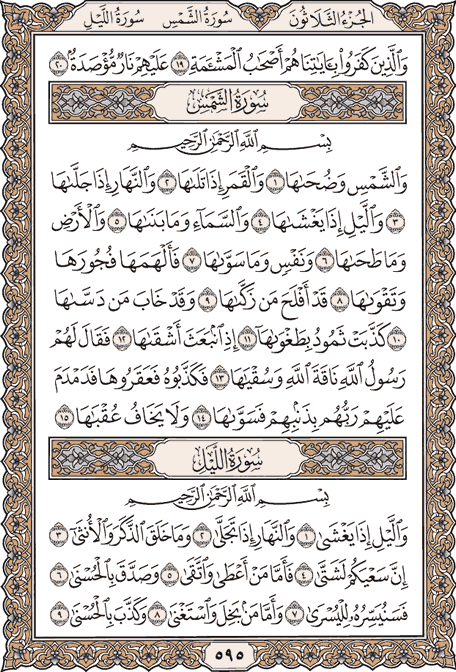 الجزء الثلاثون سورة الشمس سورة الليل
وَالَّذِينَ كَفَرُوا بِآيَاتِنَا هُمْ أَصْحَابُ الْمَشْأَمَةِ ١٩ عَلَيْهِمْ نَارٌ مُّؤْصَدَةٌ ٢٠
سُورَةُ الشَّمْسِ
بِسْمِ اللَّهِ الرَّحْمَٰنِ الرَّحِيمِ
وَالشَّمْسِ وَضُحَىٰهَا ١ وَالْقَمَرِ إِذَا تَلَىٰهَا ٢ وَالنَّهَارِ إِذَا جَلَّىٰهَا
٣ وَاللَّيْلِ إِذَا يَغْشَىٰهَا ٤ وَالسَّمَاءِ وَمَا بَنَىٰهَا ٥ وَالْأَرْضِ
وَمَا طَحَىٰهَا ٦ وَنَفْسٍ وَمَا سَوَّىٰهَا ٧ فَأَلْهَمَهَا فُجُورَهَا
وَتَقْوَىٰهَا ٨ قَدْ أَفْلَحَ مَن زَكَّىٰهَا ٩ وَقَدْ خَابَ مَن دَسَّىٰهَا
١٠ كَذَّبَتْ ثَمُودُ بِطَغْوَىٰهَا ١١ إِذِ انبَعَثَ أَشْقَىٰهَا ١٢ فَقَالَ لَهُمْ
رَسُولُ اللَّهِ نَاقَةَ اللَّهِ وَسُقْيَٰهَا ١٣ فَكَذَّبُوهُ فَعَقَرُوهَا فَدَمْدَمَ
عَلَيْهِمْ رَبُّهُم بِذَنبِهِمْ فَسَوَّىٰهَا ١٤ وَلَا يَخَافُ عُقْبَٰهَا ١٥
سُورَةُ اللَّيْلِ
بِسْمِ اللَّهِ الرَّحْمَٰنِ الرَّحِيمِ
وَاللَّيْلِ إِذَا يَغْشَىٰ ١ وَالنَّهَارِ إِذَا تَجَلَّىٰ ٢ وَمَا خَلَقَ الذَّكَرَ وَالْأُنثَىٰ ٣
إِنَّ سَعْيَكُمْ لَشَتَّىٰ ٤ فَأَمَّا مَنْ أَعْطَىٰ وَاتَّقَىٰ ٥ وَصَدَّقَ بِالْحُسْنَىٰ ٦
فَسَنُيَسِّرُهُ لِلْيُسْرَىٰ ٧ وَأَمَّا مَن بَخِلَ وَاسْتَغْنَىٰ ٨ وَكَذَّبَ بِالْحُسْنَىٰ ٩
٥٩٥